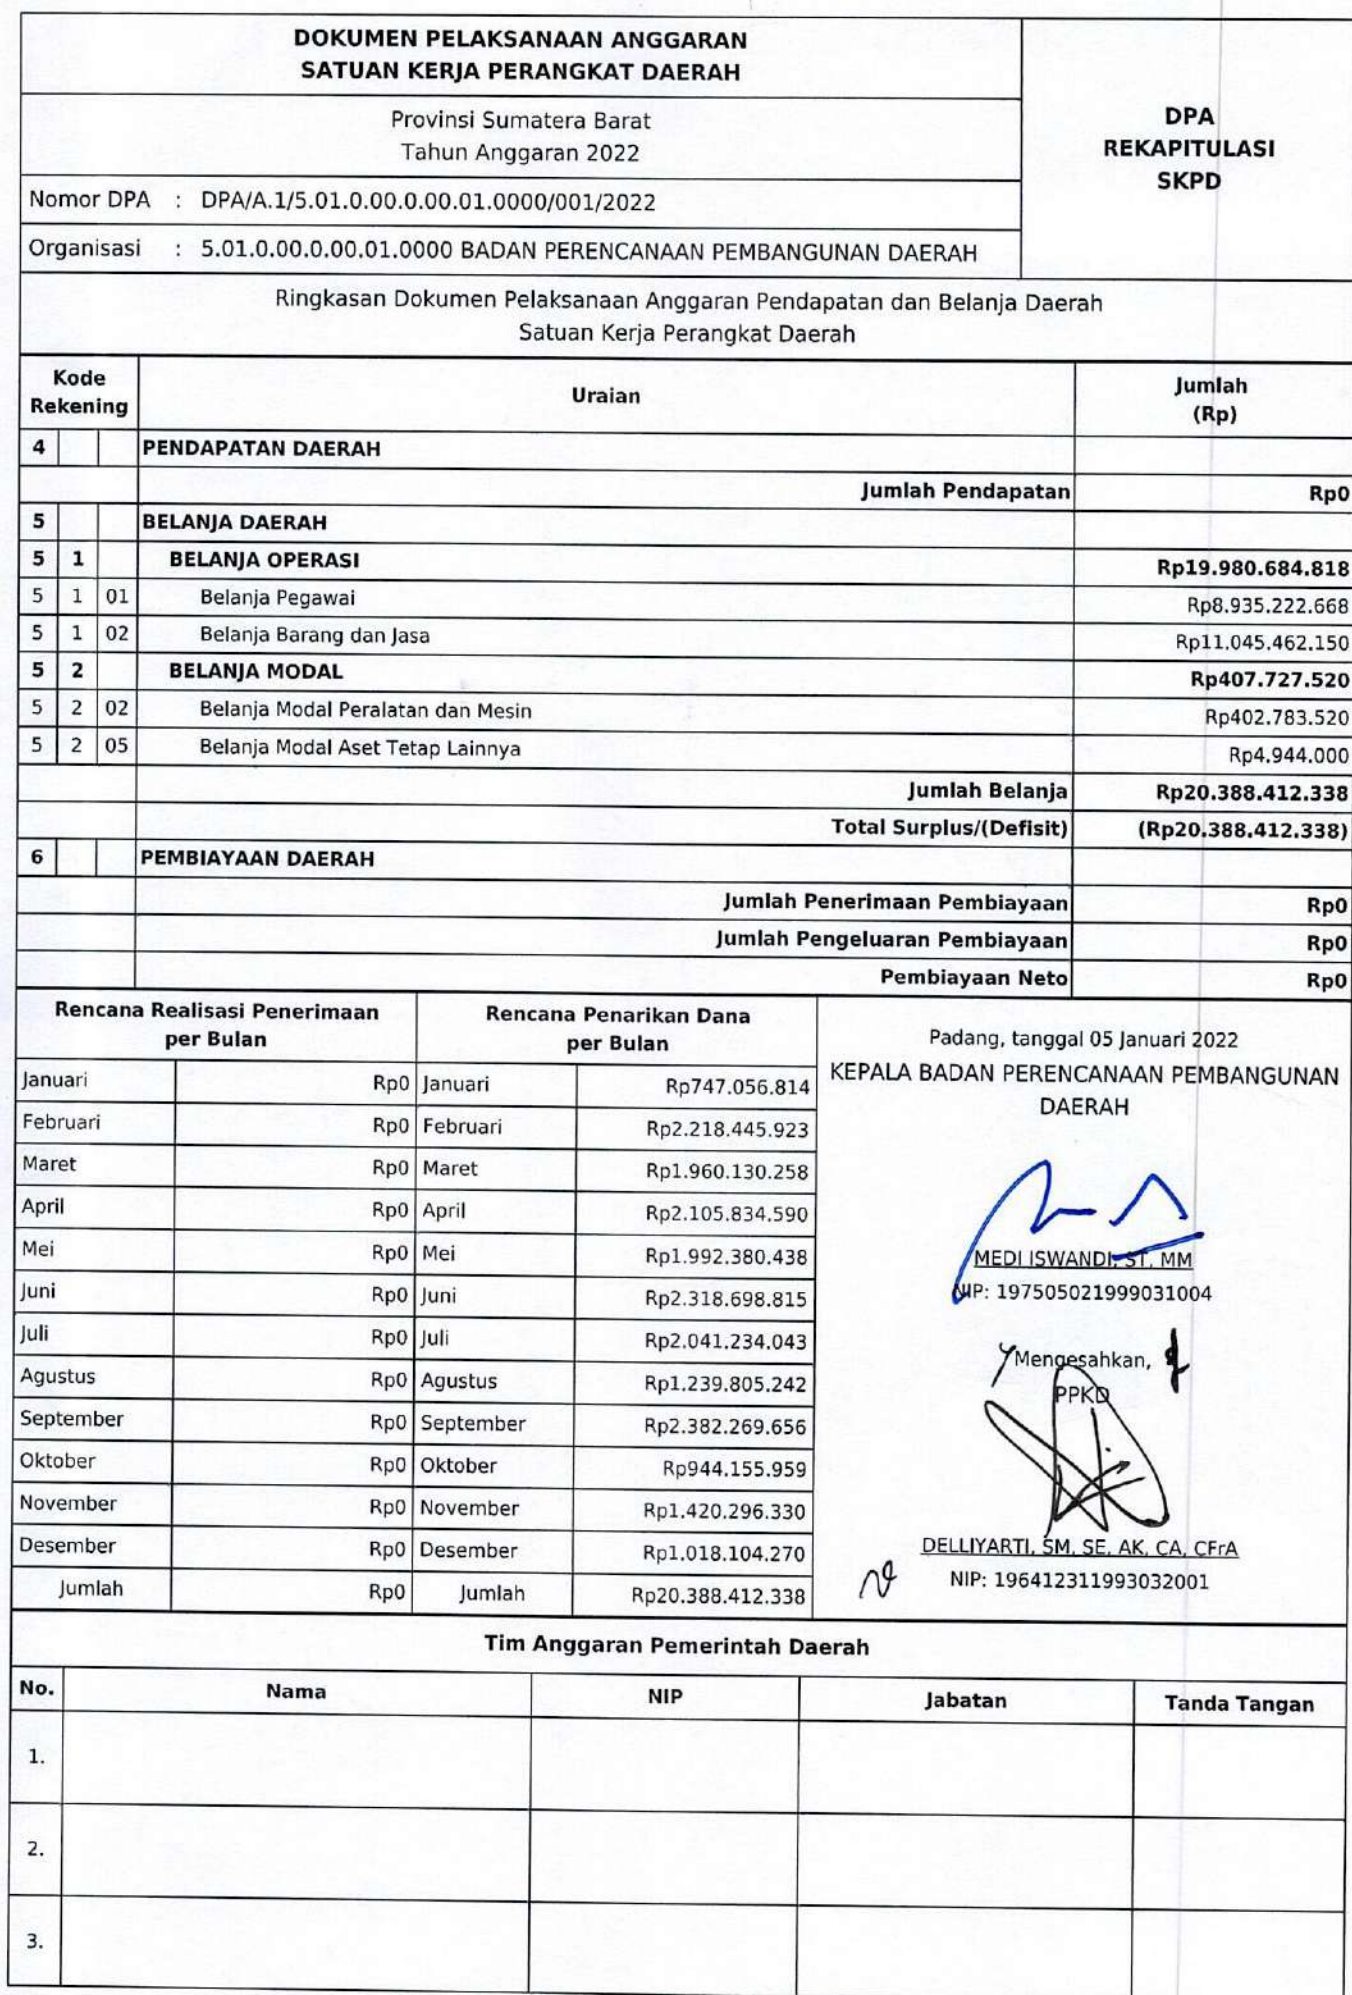 DOKUMEN PELAKSANAAN ANGGARAN
SATUAN KERJA PERANGKAT DAERAH
Provinsi Sumatera Barat
Tahun Anggaran 2022
DPA
REKAPITULASI
SKPD
Nomor DPA : DPA/A.1/5.01.0.00.0.00.01.0000/001/2022
Organisasi : 5.01.0.00.0.00.01.0000 BADAN PERENCANAAN PEMBANGUNAN DAERAH
Ringkasan Dokumen Pelaksanaan Anggaran Pendapatan dan Belanja Daerah
Satuan Kerja Perangkat Daerah
Kode Rekening Uraian Jumlah (Rp)
4 PENDAPATAN DAERAH
Jumlah Pendapatan Rp0
5 BELANJA DAERAH
5 1 BELANJA OPERASI Rp19.980.684.818
5 1 01 Belanja Pegawai Rp8.935.222.668
5 1 02 Belanja Barang dan Jasa Rp11.045.462.150
5 2 BELANJA MODAL Rp407.727.520
5 2 02 Belanja Modal Peralatan dan Mesin Rp402.783.520
5 2 05 Belanja Modal Aset Tetap Lainnya Rp4.944.000
Jumlah Belanja Rp20.388.412.338
Total Surplus/(Defisit) (Rp20.388.412.338)
6 PEMBIAYAAN DAERAH
Jumlah Penerimaan Pembiayaan Rp0
Jumlah Pengeluaran Pembiayaan Rp0
Pembiayaan Neto Rp0
Rencana Realisasi Penerimaan per Bulan Rencana Penarikan Dana per Bulan
Januari Rp0 Januari Rp747.056.814
Februari Rp0 Februari Rp2.218.445.923
Maret Rp0 Maret Rp1.960.130.258
April Rp0 April Rp2.105.834.590
Mei Rp0 Mei Rp1.992.380.438
Juni Rp0 Juni Rp2.318.698.815
Juli Rp0 Juli Rp2.041.234.043
Agustus Rp0 Agustus Rp1.239.805.242
September Rp0 September Rp2.382.269.656
Oktober Rp0 Oktober Rp944.155.959
November Rp0 November Rp1.420.296.330
Desember Rp0 Desember Rp1.018.104.270
Jumlah Rp0 Jumlah Rp20.388.412.338
Padang, tanggal 05 Januari 2022
KEPALA BADAN PERENCANAAN PEMBANGUNAN
DAERAH
MEDI ISWANDI, ST, MM
NIP: 197505021999031004
Mengesahkan,
PPKD
DELLIYARTI, SM, SE, AK, CA, CFrA
NIP: 196412311993032001
Tim Anggaran Pemerintah Daerah
No. Nama NIP Jabatan Tanda Tangan
1.
2.
3.